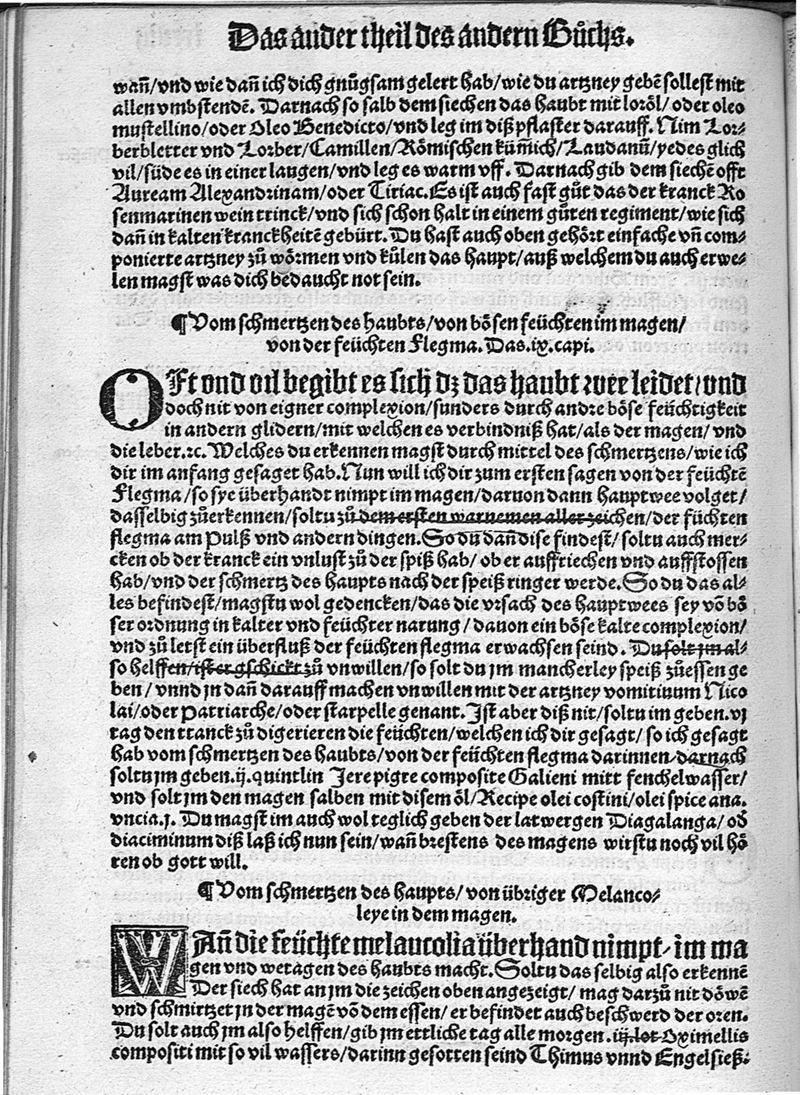 Das ander theil des andern Bůchs.
wañ/vnd wie dañ ich dich gnůgsam gelert hab/wie du artzney gebē sollest mit
allen vmbstendē. Darnach so salb dem siechen das haubt mit loröl/oder oleo
mustellino/oder Oleo Benedicto/vnd leg im diß pflaster darauff. Nim Lor-
berbletter vnd Lorber/Camillen/Römischen küm̃ich/Laudanū/yedes glich
vil/süde es in einer laugen/vnd leg es warm vff. Darnach gib dem siechē offt
Auream Alexandrinam/oder Tiriac. Es ist auch fast gůt das der kranck Ro
senmarinen wein trinck/vnd sich schon halt in einem gůten regiment/wie sich
dañ in kalten kranckheitē gebürt. Du hast auch oben gehört einfache vñ com-
ponierte artzney zů wörmen vnd kůlen das haupt/auß welchem du auch erwe-
len magst was dich bedaucht not sein.
¶ Vom schmertzen des haubts/von bösen feüchten im magen/
von der feüchten Flegma. Das.ix.capi.
OFt vnd vil begibt es sich dz das haubt wee leidet/vnd
doch nit von eigner complexion/sunders durch andre böse feüchtigkeit
in andern glidern/mit welchen es verbindniß hat/als der magen/vnd
die leber.ꝛc. Welches du erkennen magst durch mittel des schmertzens/wie ich
dir im anfang gesaget hab. Nun will ich dir zum ersten sagen von der feüchtē
Flegma/so sye überhandt nimpt im magen/daruon dann hauptwee volget/
dasselbig zůerkennen/soltu zů dem ersten warnemen aller zeichen/der füchten
flegma am Pulß vnd andern dingen. So du dañ dise findest/soltu auch mer-
cken ob der kranck ein vnlust zů der spiß hab/ob er auffriechen vnd auffstossen
hab/vnd der schmertz des haupts nach der speiß ringer werde. So du das al-
les befindest/magstu wol gedencken/das die vrsach des hauptwees sey vō bö
ser ordnung in kalter vnd feüchter narung/dauon ein böse kalte complexion/
vnd zů letst ein überfluß der feüchten flegma erwachsen seind. Du solt jm al-
so helffen/ist er gschickt zů vnwillen/so solt du jm mancherley speiß zůessen ge
ben/vnnd jn dañ darauff machen vnwillen mit der artzney vomitiuum Nico
lai/oder Patriarche/oder starpelle genant. Ist aber diß nit/soltu im geben.vj
tag den tranck zů digerieren die feüchten/welchen ich dir gesagt/so ich gesagt
hab vom schmertzen des haubts/von der feüchten flegma darinnen/darnach
soltu jm geben.ij.quintlin Jerepigre composite Galieni mitt fenchelwasser/
vnd solt jm den magen salben mit disem öl/Recipe olei costini/olei spice ana.
vncia.j. Du magst im auch wol teglich geben der latwergen Diagalanga/od̄
diaciminum diß laß ich nun sein/wañ brestens des magens wirstu noch vil hö
ren ob gott will.
¶ Vom schmertzen des haupts/von übriger Melanco-
leye in dem magen.
WAñ die feüchte melancolia überhand nimpt/im ma
gen vnd wetagen des haubts macht. Soltu das selbig also erkennē
Der siech hat an jm die zeichen oben angezeigt/mag darzů nit döwē
vnd schmirtzet jn der magē vō dem essen/er befindet auch beschwerd der oren.
Du solt auch jm also helffen/gib jm ettliche tag alle morgen.iij.lot Oximellis
compositi mit so vil wassers/darinn gesotten seind Thimus vnnd Engelsieß: